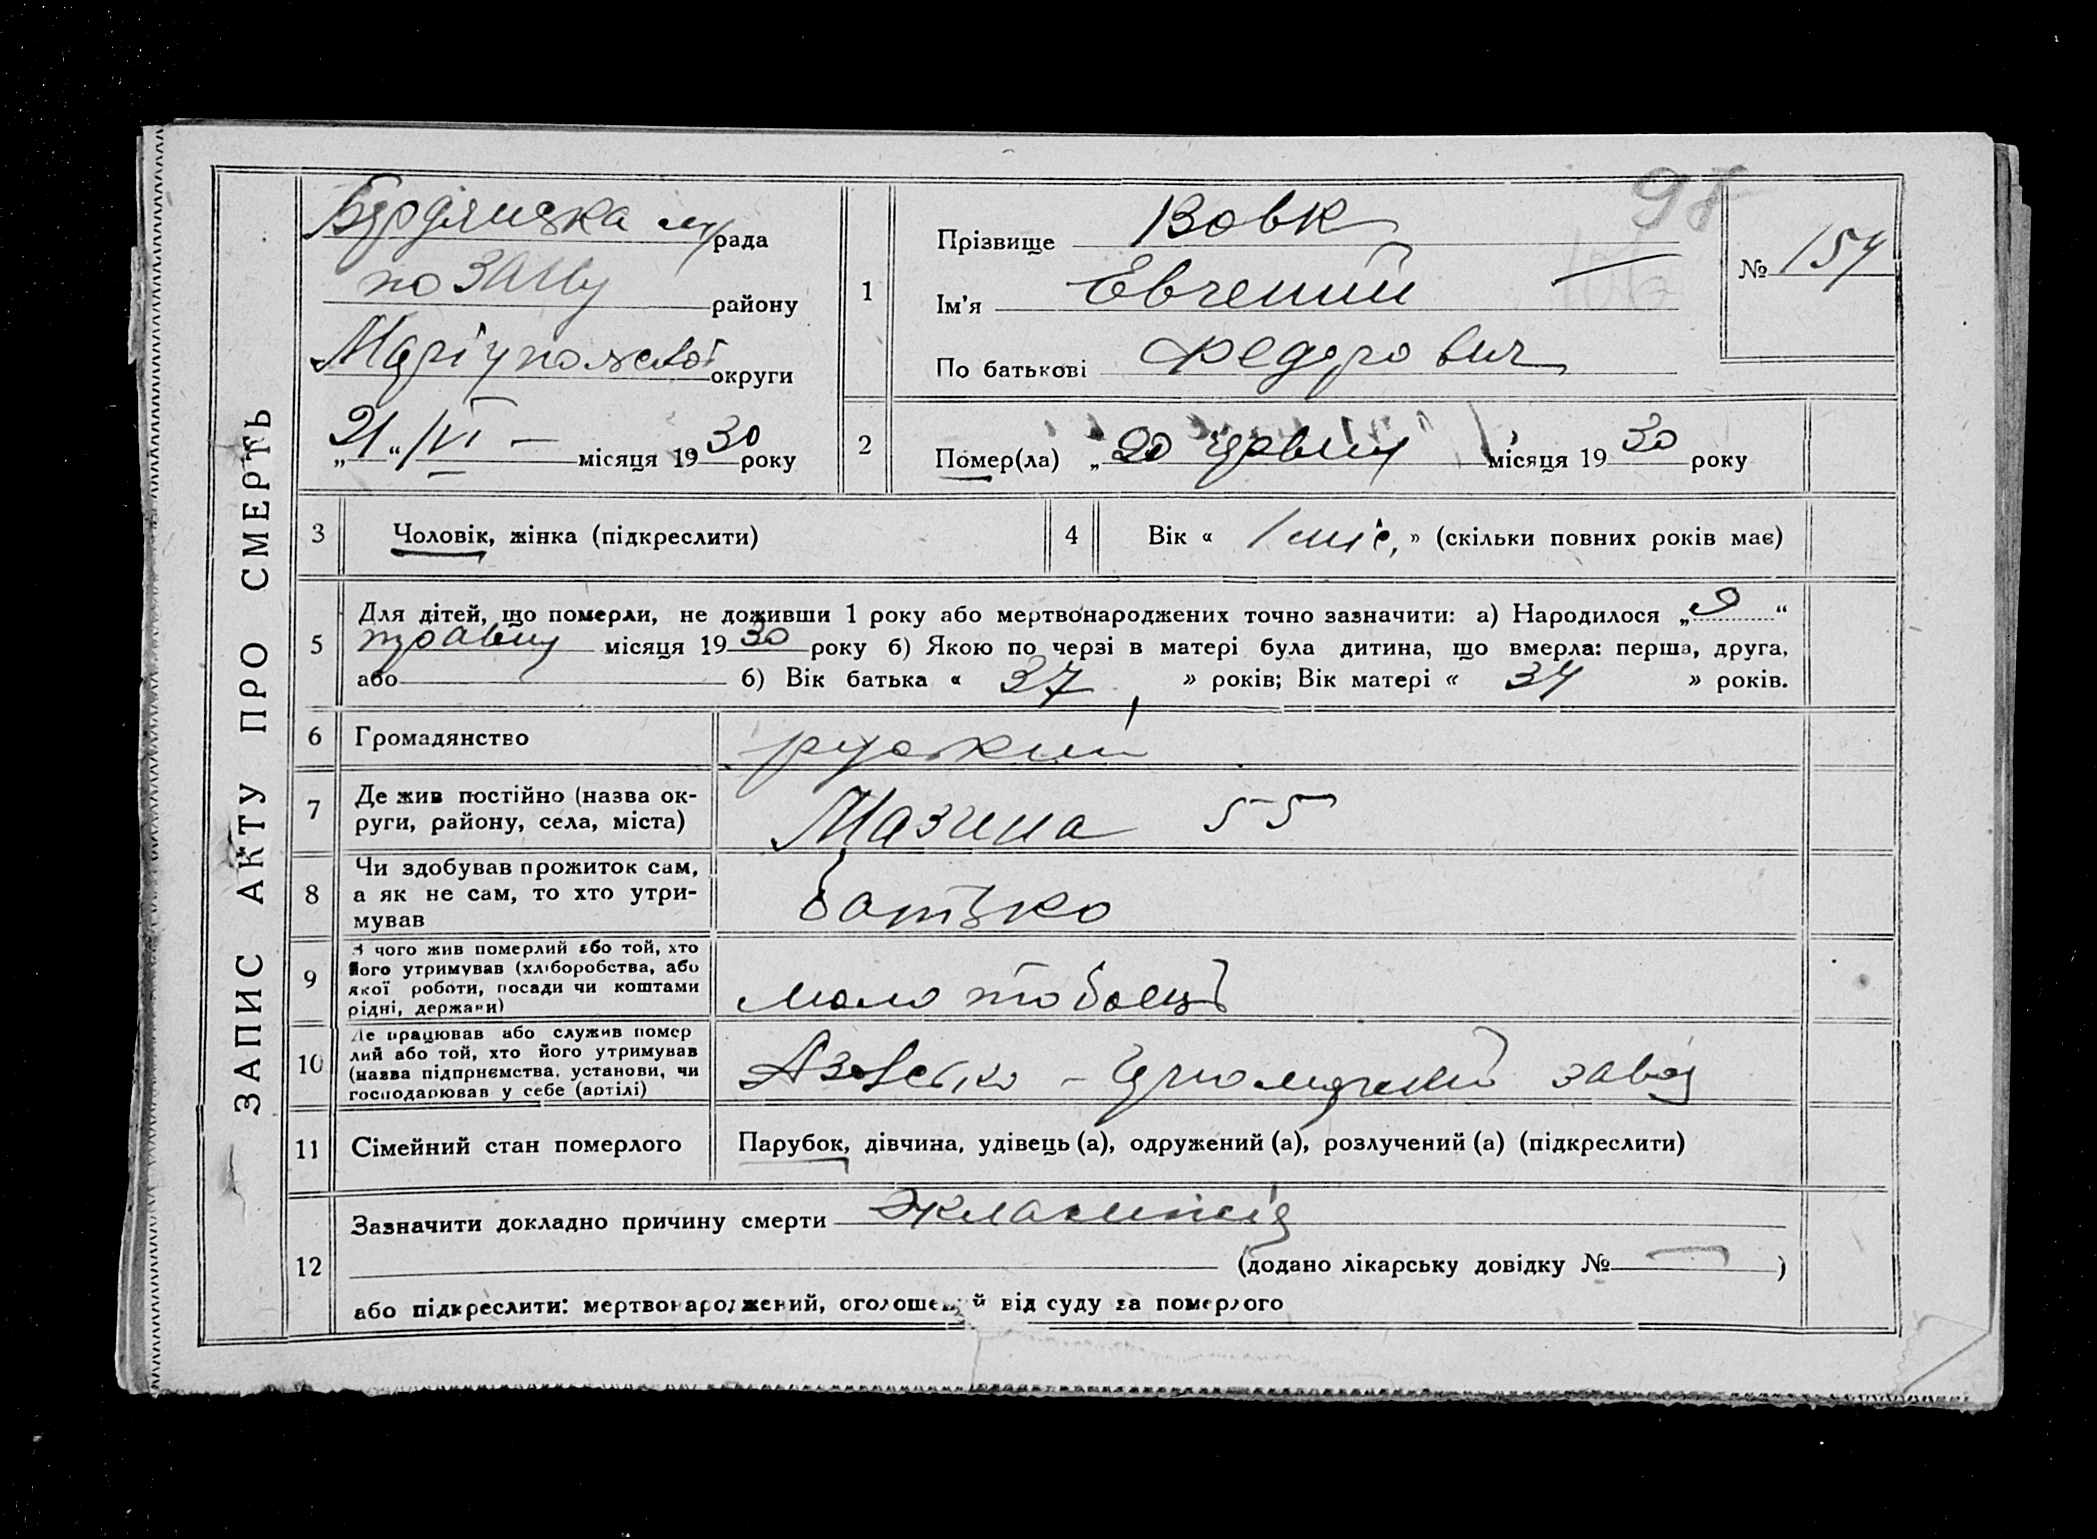 ЗАПИС АКТУ ПРО СМЕРТЬ
Бердянська м/рада
району
Маріупольської округи
„21“ /VI — місяця 1930 року
98
№ 154
1
Прізвище Вовк
Ім'я Евгений
По батькові Федорович
2 Помер(ла) „20 червня місяця 1930 року
3 Чоловік, жінка (підкреслити)
4 Вік « 1 міс, » (скільки повних років має)
5 Для дітей, що померли, не доживши 1 року або мертвонароджених точно зазначити: а) Народилося „9“
травня місяця 1930 року б) Якою по черзі в матері була дитина, що вмерла: перша, друга,
або б) Вік батька « 37 » років; Вік матері « 34 » років.
6 Громадянство руский
7 Де жив постійно (назва ок-
руги, району, села, міста) Мазина 55
8 Чи здобував прожиток сам,
а як не сам, то хто утри-
мував батько
9 З чого жив померлий або той, хто
його утримував (хліборобства, або
якої роботи, посади чи коштами
рідні, держави) молотобоець
10 Де працював або служив помер
лий або той, хто його утримував
(назва підприємства, установи, чи
господарював у себе (артілі) Азовсько - завод
11 Сімейний стан померлого Парубок, дівчина, удівець (а), одружений (а), розлучений (а) (підкреслити)
12 Зазначити докладно причину смерти Экламисія
(додано лікарську довідку № — )
або підкреслити: мертвонароджений, оголошений від суду за померлого